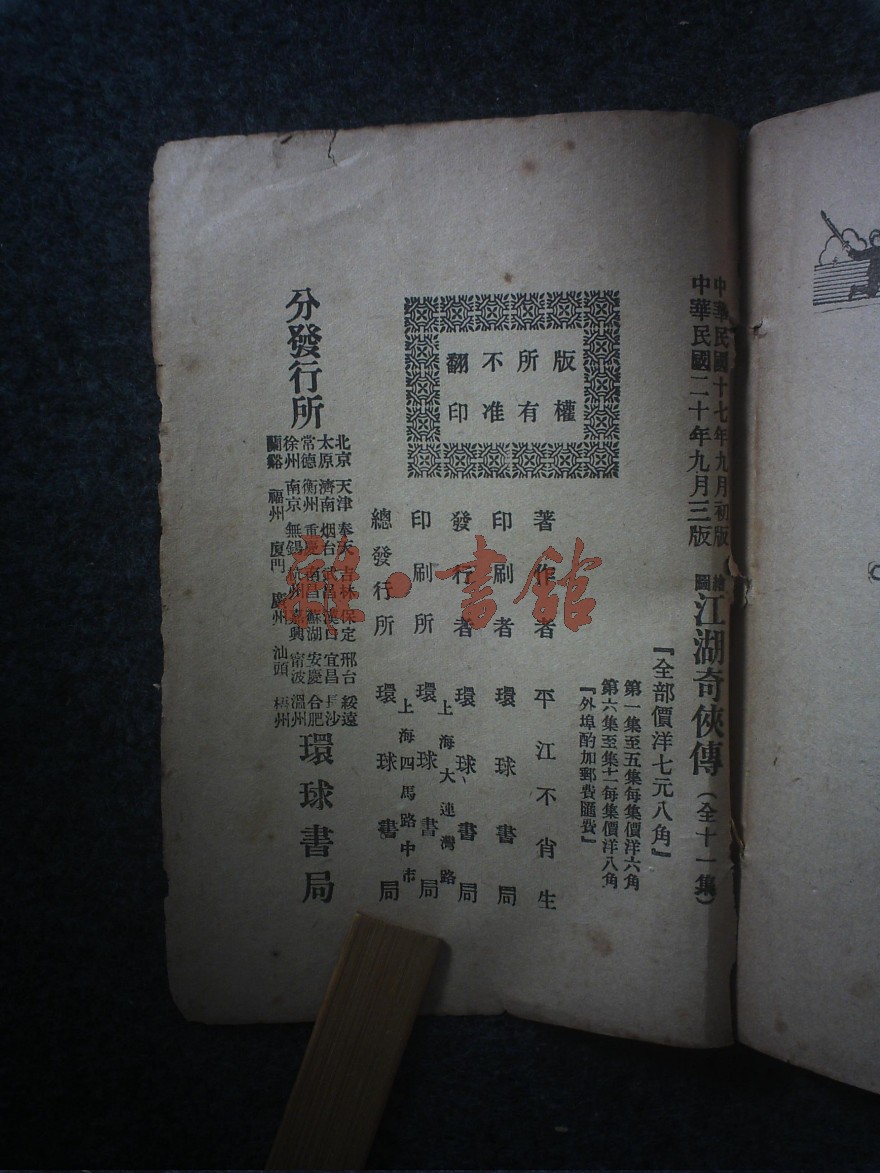 中華民國十七年九月初版
中華民國二十年九月三版
繪圖江湖奇俠傳（全十一集）
『全部價洋七元八角』
第一集至五集每集價洋六角
第六集至集十一每集價洋八角
『外埠酌加郵費匯費』
版權
所有
不准
翻印
著作者 平江不肖生
印刷者 環球書局
發行者 環球書局
上海大連灣路
印刷所 環球書局
上海四馬路中市
總發行所 環球書局
分發行所
北京 天津 奉天 吉林 保定 邢台 綏遠
太原 濟南 烟台 武昌 漢口 宜昌 長沙
常德 衡州 重慶 南昌 蕪湖 安慶 合肥
徐州 南京 無錫 杭州 嘉興 甯波 溫州
蘭谿 福州 廈門 廣州 汕頭 梧州
環球書局
雜·書館